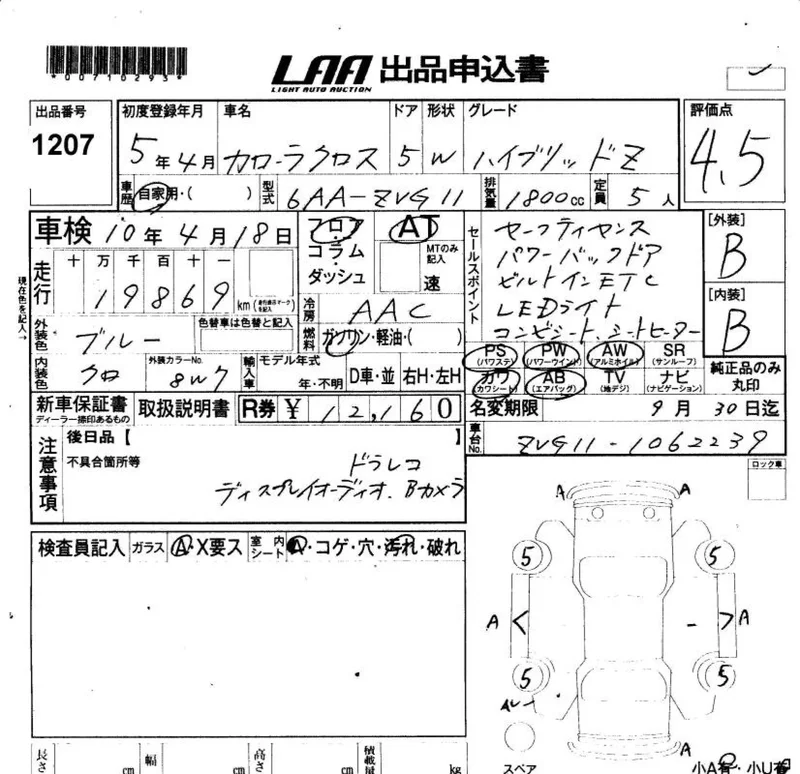 *00710293*
LAA 出品申込書
LIGHT AUTO AUCTION
出品番号
1207
初度登録年月
5年4月
車名
カローラクロス
ドア
5
形状
W
グレード
ハイブリッドZ
評価点
4.5
車歴
自家用・( )
型式
6AA-ZVG11
排気量
1800cc
定員
5人
車検 10年4月18日
フロア
コラム・
ダッシュ
AT
MTのみ記入
速
セールスポイント
セーフティセンス
パワーバックドア
ビルトインETC
LEDライト
コンビシート、シートヒーター
[外装]
B
[内装]
B
現在色を記入→
走行
十 万 千 百 十 一
19869
km
冷房
AAC
燃料
ガソリン・軽油・( )
外装色
ブルー
色替車は色替と記入
内装色
クロ
外装カラーNo.
8W7
輸入車
モデル年式
年・不明
D車・並
右H・左H
PS (パワステ)
PW (パワーウインド)
AW (アルミホイル)
SR (サンルーフ)
カワ (カワシート)
AB (エアバッグ)
TV (地デジ)
ナビ (ナビゲーション)
純正品のみ
丸印
新車保証書
ディーラー捺印あるもの
取扱説明書
R券 ¥ 12,160
名変期限 9月30日迄
車台No.
ZVG11-1062239
注意事項
後日品【 】
不具合箇所等
ドラレコ
ディスプレイオーディオ、Bカメラ
ロック車
検査員記入
ガラス
A・X要ス
室内シート
・コゲ・穴・汚れ・破れ
A A
5 5
A A
5 5
A
スペア
小A有・小U有
長さ cm
幅 cm
高さ cm
積載量 kg